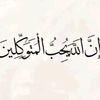 إِنَّ اللَّهَ يُحِبُّ الْمُتَوَكِّلِينَ